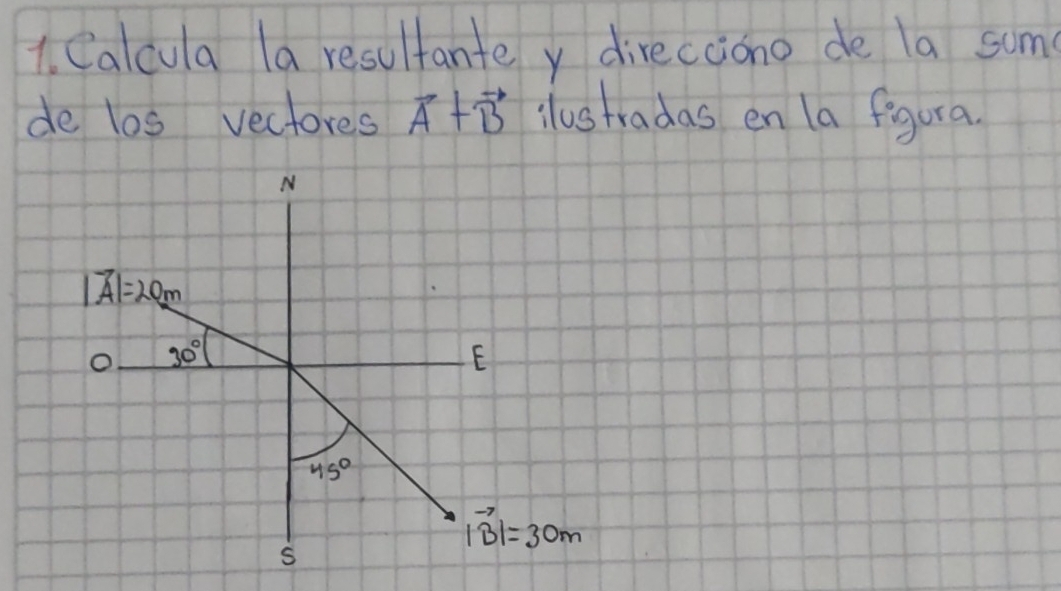 1. Calcula la resultante y direcciono de la suma
de los vectores A⃗ + B⃗ ilustradas en la figura.
N
|A⃗|=20m
O 30° E
45°
|B⃗|=30m
S